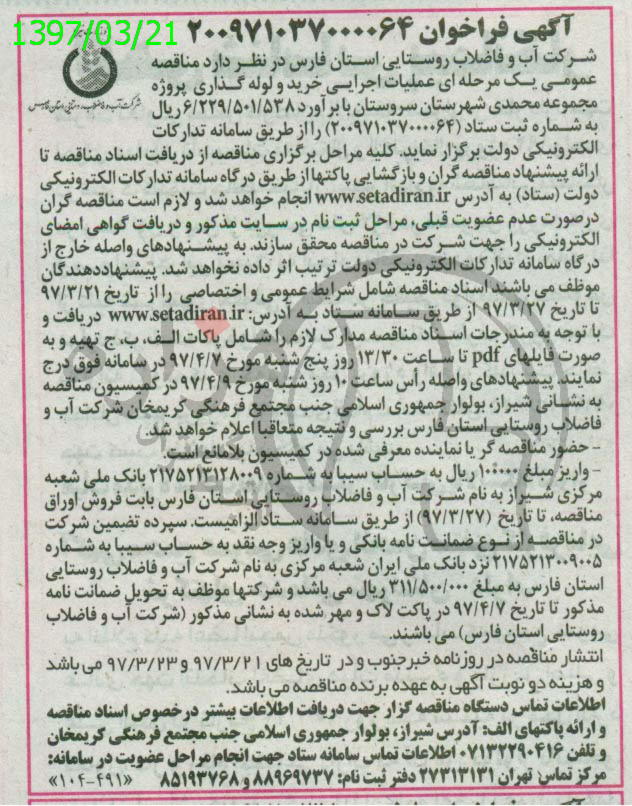 1397/03/21
آگهی فراخوان ۲۰۰۹۷۱۰۳۷۰۰۰۰۶۴
شرکت آب و فاضلاب روستایی استان فارس در نظر دارد مناقصه
عمومی یک مرحله ای عملیات اجرایی خرید و لوله گذاری پروژه
مجموعه محمدی شهرستان سروستان با برآورد ۶/۲۲۹/۵۰۱/۵۳۸ ریال
به شماره ثبت ستاد (۲۰۰۹۷۱۰۳۷۰۰۰۰۶۴) را از طریق سامانه تدارکات
شرکت آب و فاضلاب روستایی استان فارس
الکترونیکی دولت برگزار نماید. کلیه مراحل برگزاری مناقصه از دریافت اسناد مناقصه تا
ارائه پیشنهاد مناقصه گران و بازگشایی پاکتها از طریق درگاه سامانه تدارکات الکترونیکی
دولت (ستاد) به آدرس www.setadiran.ir انجام خواهد شد و لازم است مناقصه گران
درصورت عدم عضویت قبلی، مراحل ثبت نام در سایت مذکور و دریافت گواهی امضای
الکترونیکی را جهت شرکت در مناقصه محقق سازند. به پیشنهادهای واصله خارج از
درگاه سامانه تدارکات الکترونیکی دولت ترتیب اثر داده نخواهد شد. پیشنهاددهندگان
موظف می باشند اسناد مناقصه شامل شرایط عمومی و اختصاصی را از تاریخ ۹۷/۳/۲۱
تا تاریخ ۹۷/۳/۲۷ از طریق سامانه ستاد به آدرس: www.setadiran.ir دریافت و
با توجه به مندرجات اسناد مناقصه مدارک لازم را شامل پاکات الف، ب، ج تهیه و به
صورت فایلهای pdf تا ساعت ۱۳/۳۰ روز پنج شنبه مورخ ۹۷/۴/۷ در سامانه فوق درج
نمایند. پیشنهادهای واصله رأس ساعت ۱۰ روز شنبه مورخ ۹۷/۴/۹ در کمیسیون مناقصه
به نشانی شیراز، بولوار جمهوری اسلامی جنب مجتمع فرهنگی کریمخان شرکت آب و
فاضلاب روستایی استان فارس بررسی و نتیجه متعاقبا اعلام خواهد شد.
- حضور مناقصه گر یا نماینده معرفی شده در کمیسیون بلامانع است.
- واریز مبلغ ۱۰۰۰۰۰۰ ریال به حساب سیبا به شماره ۲۱۷۵۲۱۳۱۲۸۰۰۹ بانک ملی شعبه
مرکزی شیراز به نام شرکت آب و فاضلاب روستایی استان فارس بابت فروش اوراق
مناقصه، تا تاریخ (۹۷/۳/۲۷) از طریق سامانه ستاد الزامیست. سپرده تضمین شرکت
در مناقصه از نوع ضمانت نامه بانکی و یا واریز وجه نقد به حساب سیبا به شماره
۲۱۷۵۲۱۳۰۰۹۰۰۵ نزد بانک ملی ایران شعبه مرکزی به نام شرکت آب و فاضلاب روستایی
استان فارس به مبلغ ۳۱۱/۵۰۰/۰۰۰ ریال می باشد و شرکتها موظف به تحویل ضمانت نامه
مذکور تا تاریخ ۹۷/۴/۷ در پاکت لاک و مهر شده به نشانی مذکور (شرکت آب و فاضلاب
روستایی استان فارس) می باشند.
انتشار مناقصه در روزنامه خبرجنوب و در تاریخ های ۹۷/۳/۲۱ و ۹۷/۳/۲۳ می باشد
و هزینه دو نوبت آگهی به عهده برنده مناقصه می باشد.
اطلاعات تماس دستگاه مناقصه گزار جهت دریافت اطلاعات بیشتر درخصوص اسناد مناقصه
و ارائه پاکتهای الف: آدرس شیراز، بولوار جمهوری اسلامی جنب مجتمع فرهنگی کریمخان
و تلفن ۰۷۱۳۲۲۹۰۴۱۶ اطلاعات تماس سامانه ستاد جهت انجام مراحل عضویت در سامانه:
مرکز تماس: تهران ۲۷۳۱۳۱۳۱ دفتر ثبت نام: ۸۸۹۶۹۷۳۷ و ۸۵۱۹۳۷۶۸ «۱۰۴-۴۹۱»